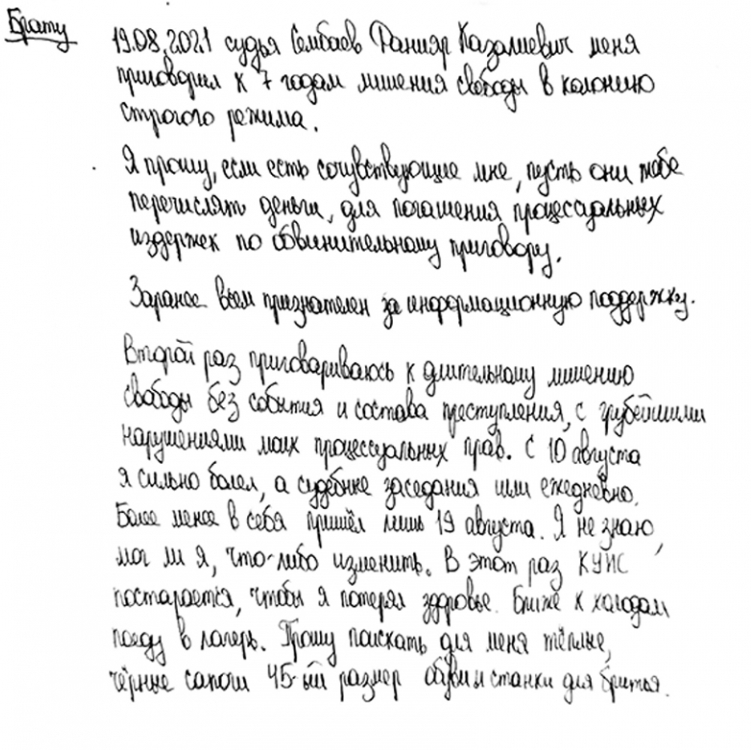 Брату
19.08.2021 судья Сембаев Данияр Казалиевич меня
приговорил к 7 годам лишения свободы в колонию
строгого режима.
Я прошу, если есть сочувствующие мне, пусть они тебе
перечислять деньги, для погашения процессуальных
издержек по обвинительному приговору.
Заранее всем признателен за информационную поддержку.
Второй раз приговариваюсь к длительному лишению
свободы без события и состава преступления, с грубейшими
нарушениями моих процессуальных прав. С 10 августа
я сильно болел, а судебные заседания шли ежедневно.
Более менее в себя пришёл лишь 19 августа. Я не знаю,
мог ли я, что-либо изменить. В этот раз КУИС
постарается, чтобы я потерял здоровье. Ближе к холодам
поеду в лагерь. Прошу поискать для меня тёплые,
чёрные сапоги 45-ый размер обуви и станки для бритья.